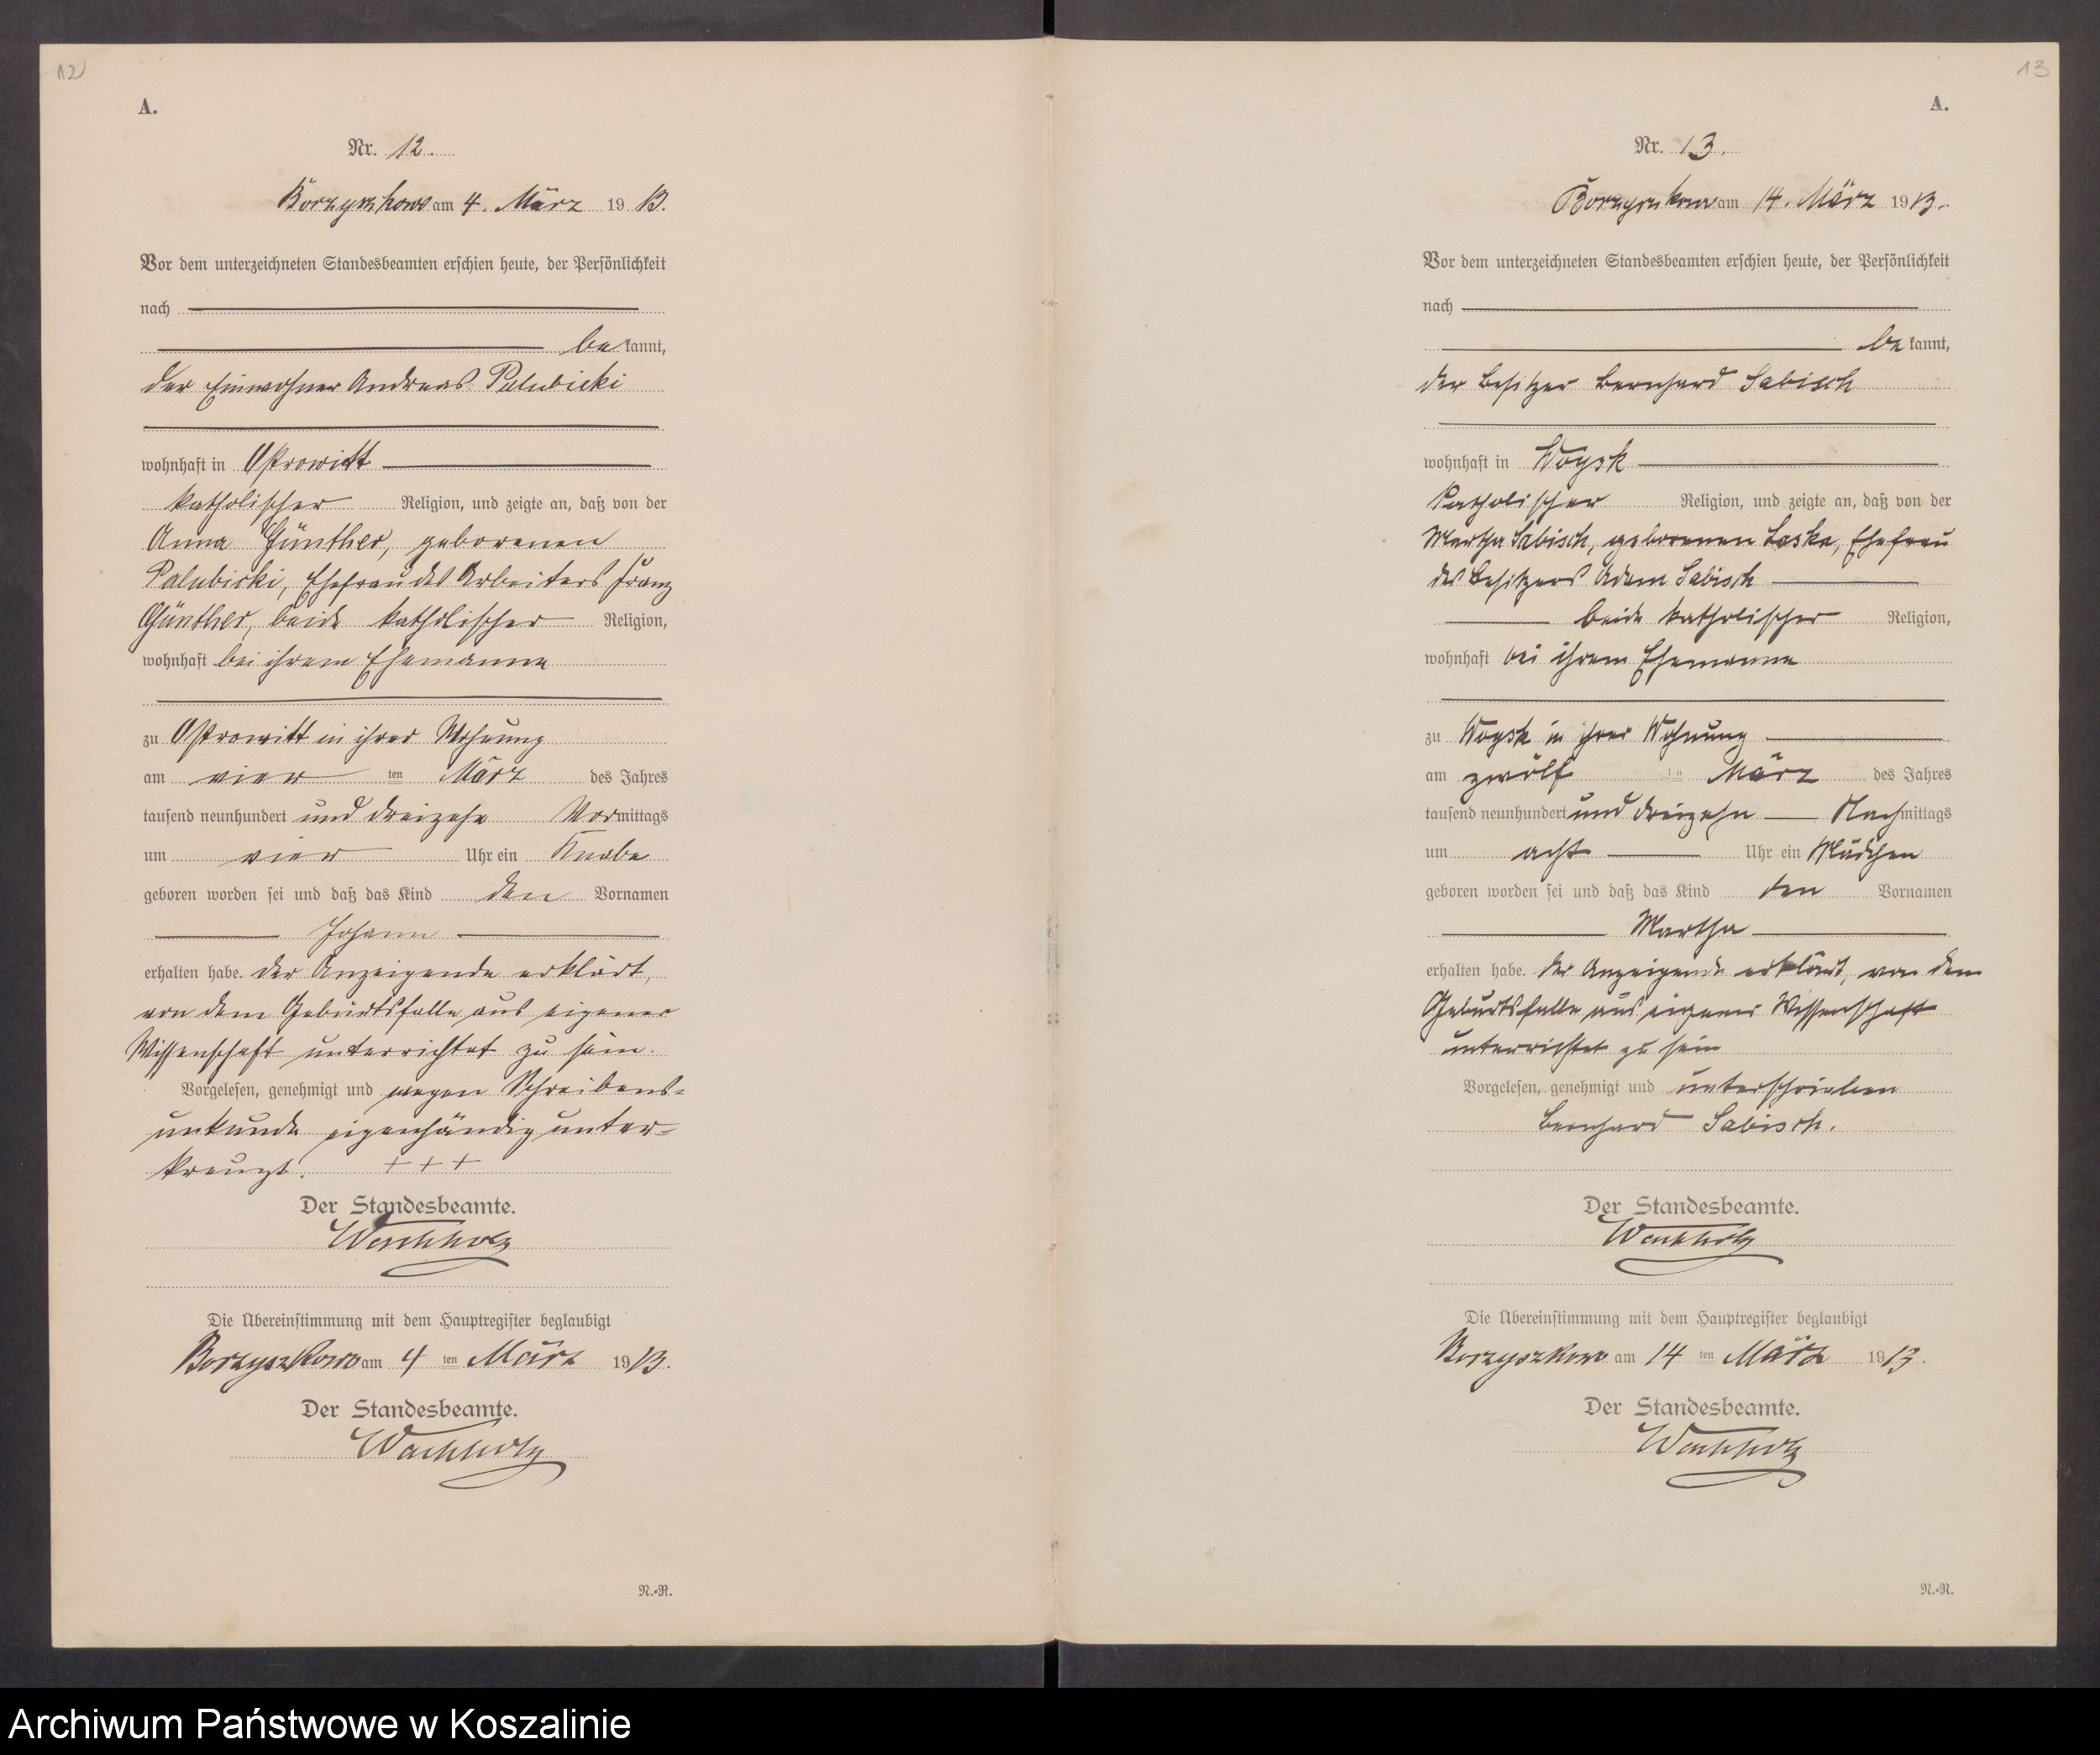 12
A.
Nr. 12.
Borzyszkowo am 4. März 1913.
Vor dem unterzeichneten Standesbeamten erschien heute, der Persönlichkeit
nach
be kannt,
der Einwohner Andreas Palubicki
wohnhaft in Ostrowitt
katholischer Religion, und zeigte an, daß von der
Anna Günther, geborenen
Palubicki, Ehefrau des Arbeiters Franz
Günther, beide katholischer Religion,
wohnhaft bei ihrem Ehemanne
zu Ostrowitt in ihrer Wohnung
am vier ten März des Jahres
tausend neunhundert und dreizehn Vormittags
um vier Uhr ein Knabe
geboren worden sei und daß das Kind den Vornamen
Johann
erhalten habe. Der Anzeigende erklärt,
von dem Geburtsfalle aus eigener
Wissenschaft unterrichtet zu sein.
Vorgelesen, genehmigt und wegen Schreibens-
unkunde eigenhändig unter-
kreuzt. + + +
Der Standesbeamte.
Wachholz
Die Übereinstimmung mit dem Hauptregister beglaubigt
Borzyszkowo am 4 ten März 1913.
Der Standesbeamte.
Wachholz
N.-R.
13
A.
Nr. 13.
Borzyszkowo am 14. März 1913.
Vor dem unterzeichneten Standesbeamten erschien heute, der Persönlichkeit
nach
be kannt,
der Besitzer Bernhard Sabisch
wohnhaft in Woysk
katholischer Religion, und zeigte an, daß von der
Martha Sabisch, geborenen Laska, Ehefrau
des Besitzers Adam Sabisch
beide katholischer Religion,
wohnhaft bei ihrem Ehemanne
zu Woysk in ihrer Wohnung
am zwölf ten März des Jahres
tausend neunhundert und dreizehn Nachmittags
um acht Uhr ein Mädchen
geboren worden sei und daß das Kind den Vornamen
Martha
erhalten habe. Der Anzeigende erklärt, von dem
Geburtsfalle aus eigener Wissenschaft
unterrichtet zu sein
Vorgelesen, genehmigt und unterschrieben
Bernhard Sabisch.
Der Standesbeamte.
Wachholz
Die Übereinstimmung mit dem Hauptregister beglaubigt
Borzyszkowo am 14 ten März 1913.
Der Standesbeamte.
Wachholz
N.-R.
Archiwum Państwowe w Koszalinie